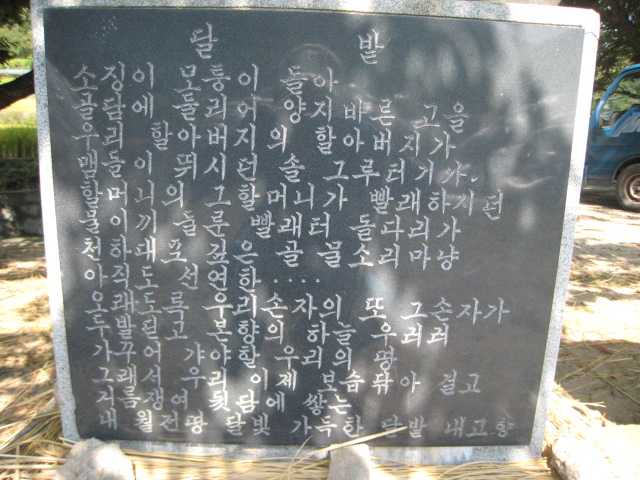 달 밭
소징이 모퉁이 돌아
골담에 둘리어 양지 바른 고을
우리 할아버지의 할아버지가
맴돌이 뛰시던 솔 그루터기 갸.
할머니의 그 할머니가 빨래하시던
물이끼 빨래터 돌다리가
천하대 깊은 골 물소리마냥
아직도 선연한 ....
오래도록 우리 손자의 또 그손자가
두발 딛고 본향의 하늘 우러러
가꾸어 갸야할 우리의 땅
그래서 우리 이제 보습 닦아 결고
거름 쟁여 뒷담에 쌓는
내 월전땅 달빛 가득한 달밭 내고향